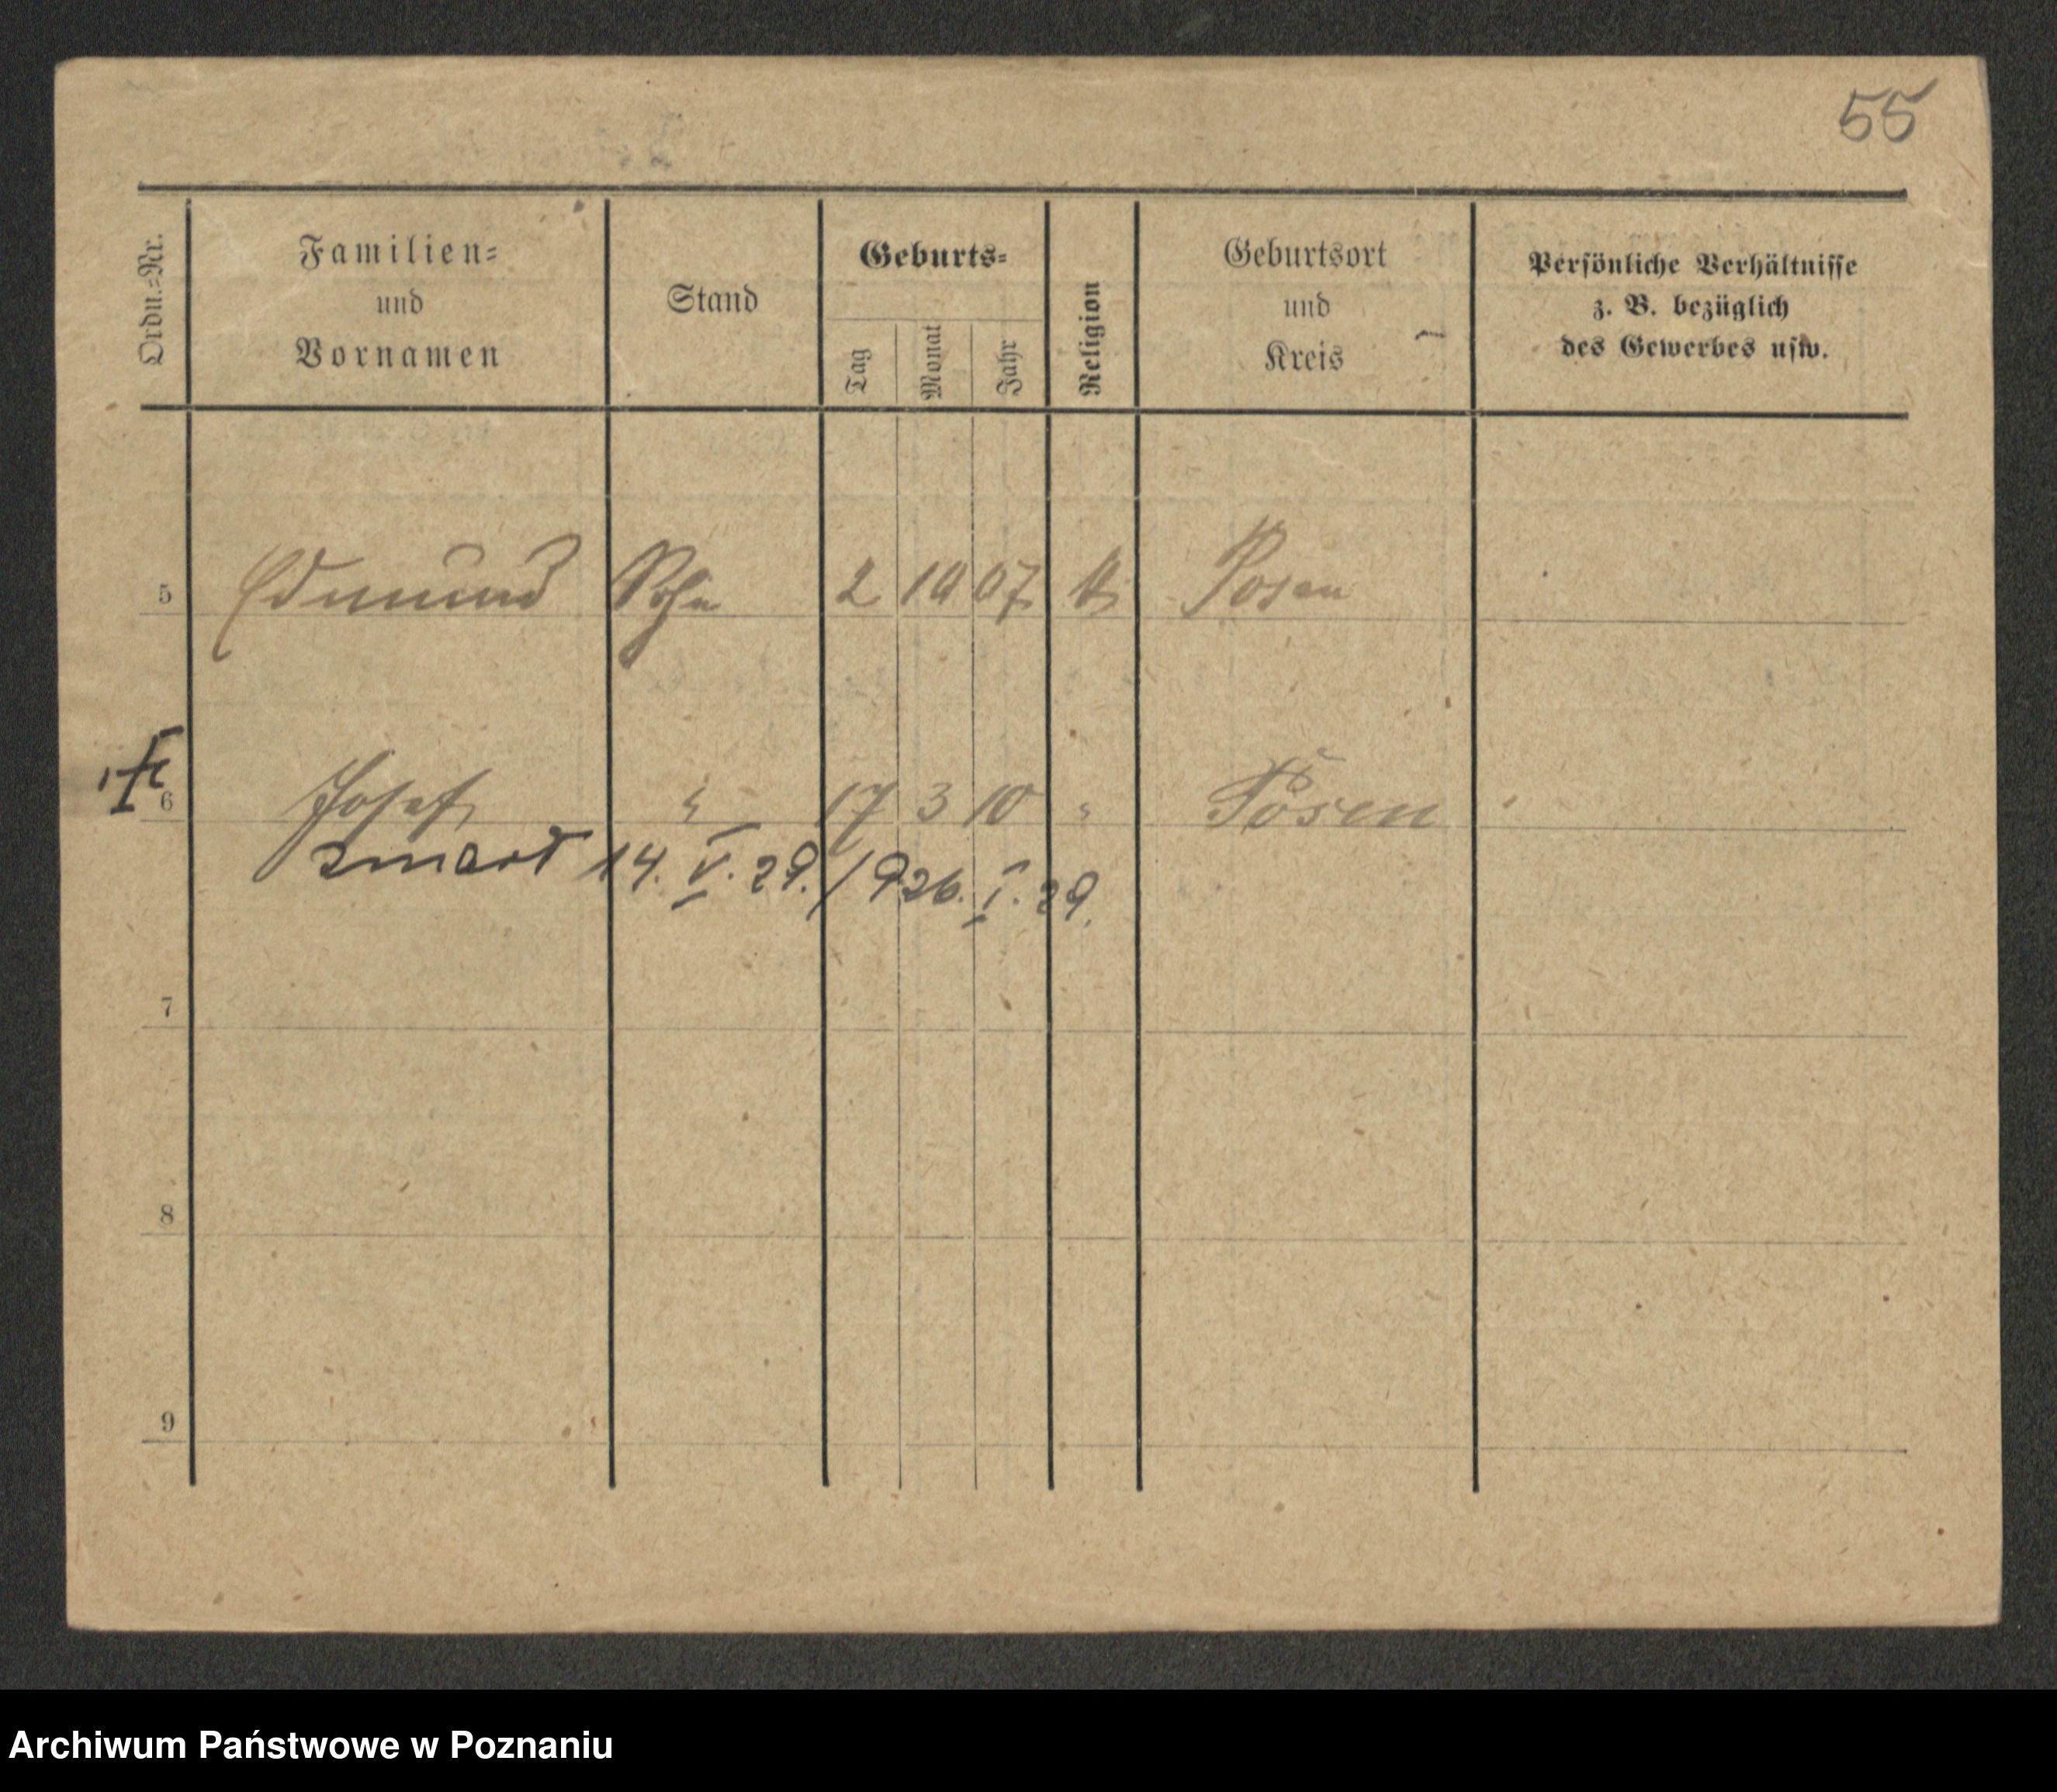 55
Ordn.-Nr.
Familien-
und
Vornamen
Stand
Geburts-
Tag
Monat
Jahr
Religion
Geburtsort
und
Kreis
Persönliche Verhältnisse
z. B. bezüglich
des Gewerbes usw.
5 Edmund Sohn 2 10 07 k Posen
6 Josef " 17 3 10 " Posen
zmarł 14. V. 29. / 926. I. 29.
7
8
9
Archiwum Państwowe w Poznaniu